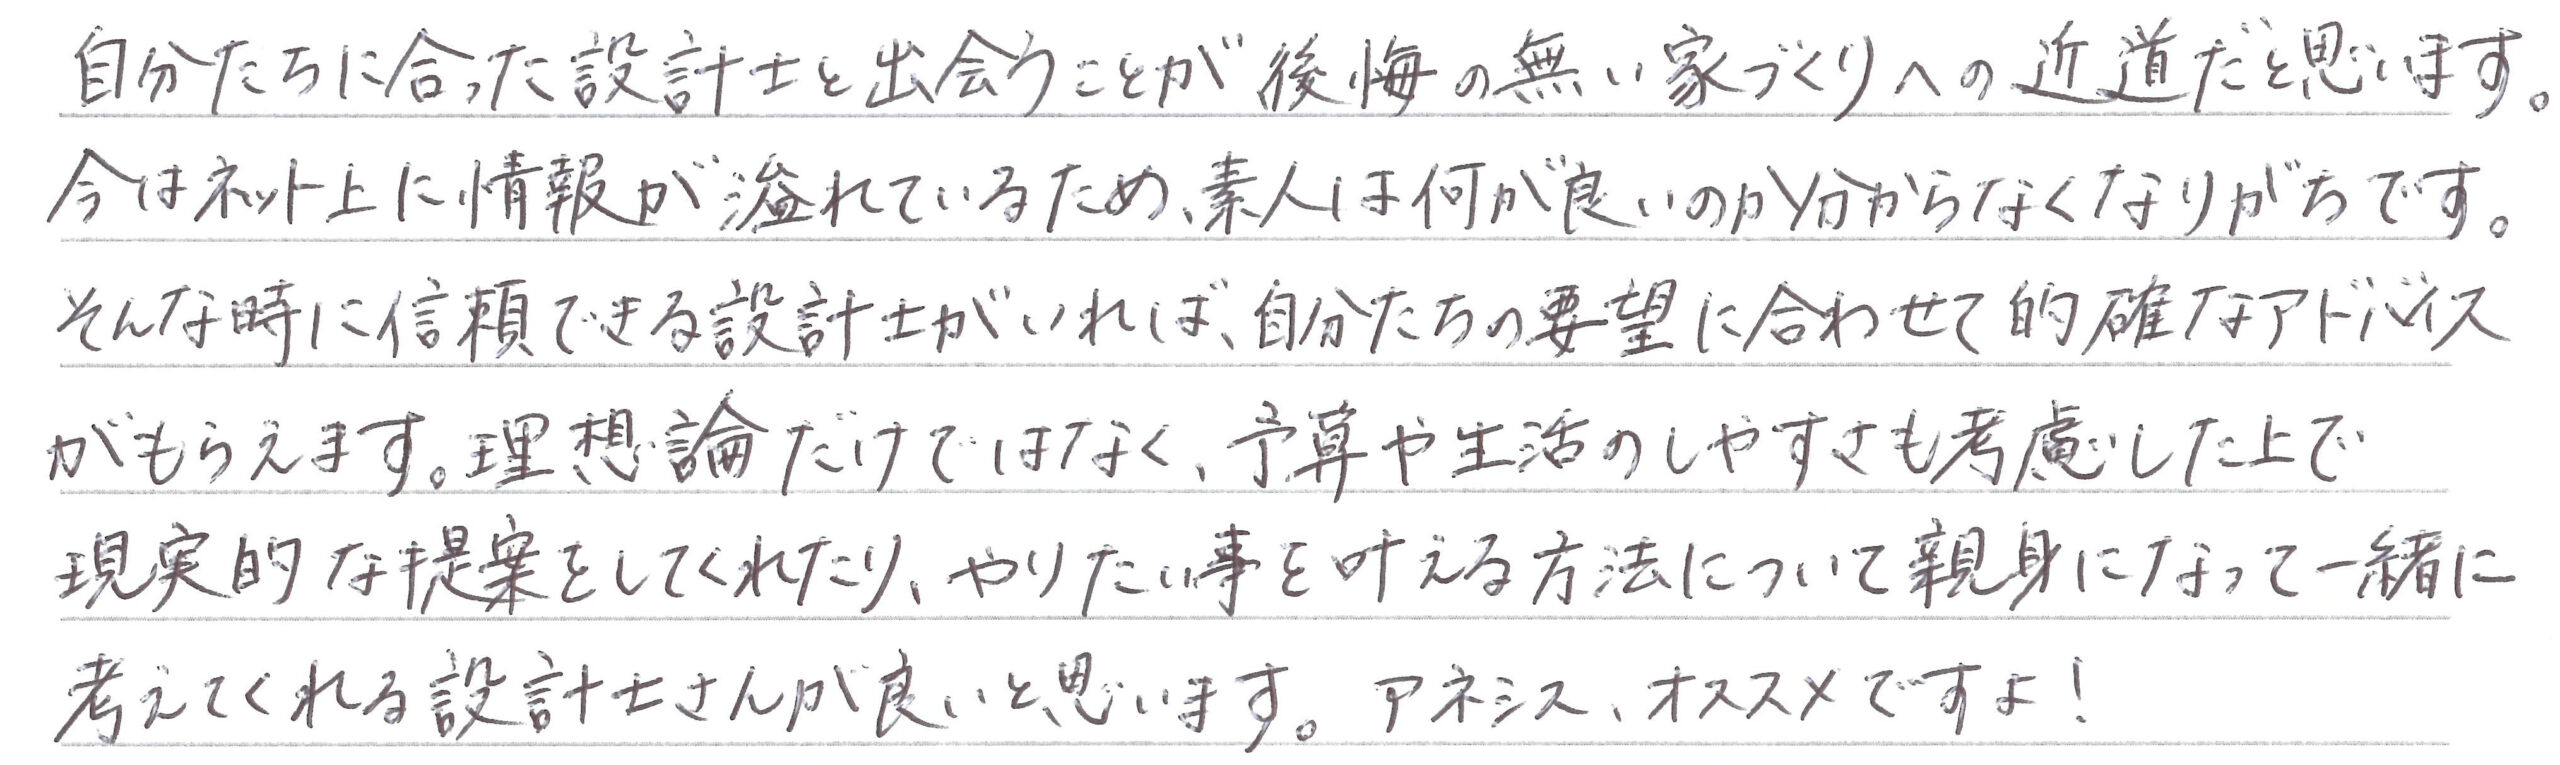 自分たちに合った設計士と出会うことが後悔の無い家づくりへの近道だと思います。
今はネット上に情報が溢れているため、素人は何が良いのか分からなくなりがちです。
そんな時に信頼できる設計士がいれば、自分たちの要望に合わせて的確なアドバイス
がもらえます。理想論だけではなく、予算や生活のしやすさも考慮した上で
現実的な提案をしてくれたり、やりたい事を叶える方法について親身になって一緒に
考えてくれる設計士さんが良いと思います。アネシス、オススメですよ！